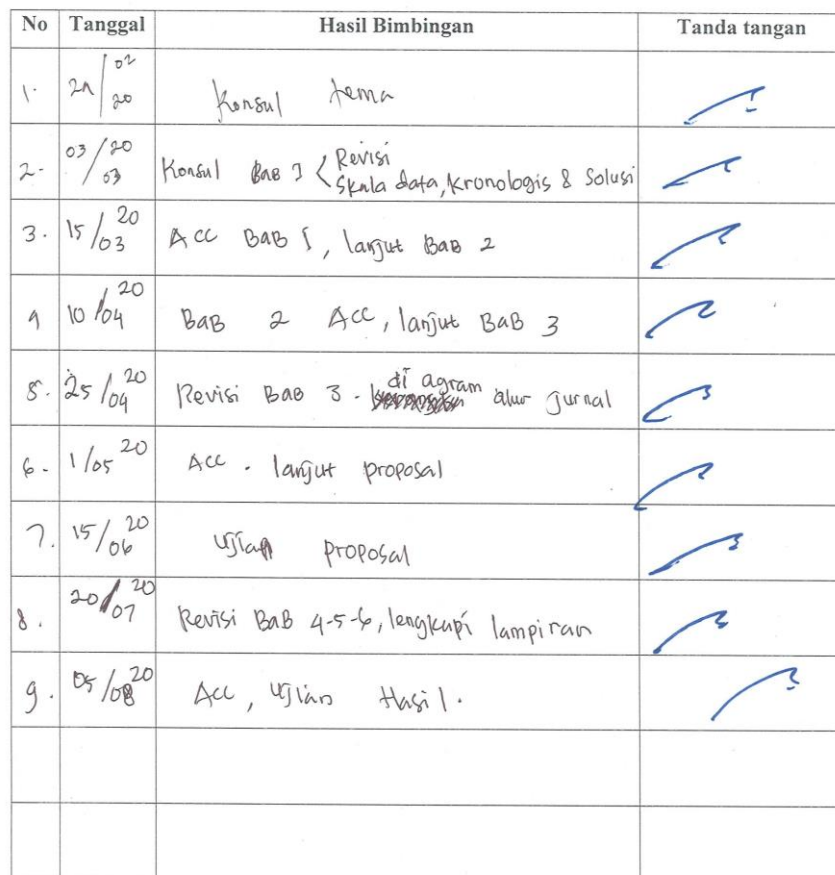 No Tanggal Hasil Bimbingan Tanda tangan
1. 21/02 20 Konsul tema
2. 03/03 20 Konsul Bab 1 < Revisi
Skala data, kronologis & Solusi
3. 15/03 20 Acc BaB 1, lanjut BaB 2
4 10/04 20 BaB 2 Acc, lanjut BaB 3
5. 25/04 20 Revisi BaB 3. diagram alur Jurnal
6. 1/05 20 Acc. lanjut proposal
7. 15/06 20 Ujian proposal
8. 20/07 20 Revisi BaB 4-5-6, lengkapi lampiran
9. 05/08 20 Acc, Ujian Hasil.